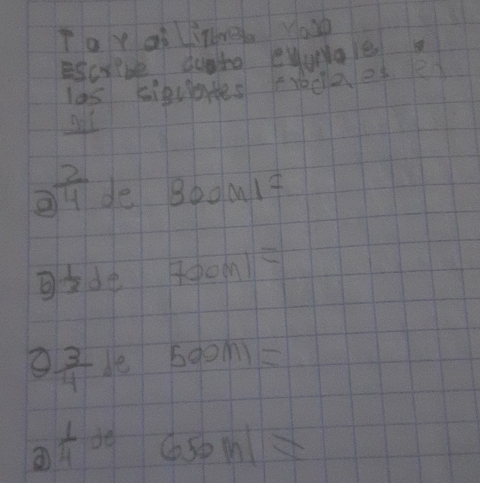 Escribe cuanto equivale
los siguientes en
Ml
a) 2/4 de 800ml=
b) 1/2 de 700ml=
c) 3/4 de 500ml=
d) 1/4 de 650ml=